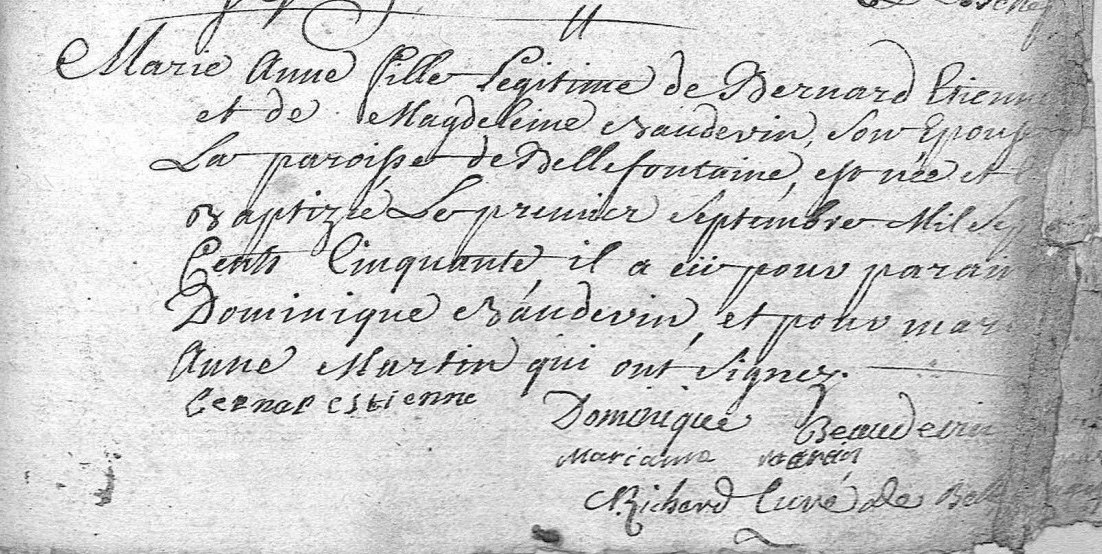 Marie Anne fille Legitime de Bernard Etienn
et de Magdeleine Baudevin, son Epous
La paroisse de Bellefontaine, est née et
Baptizée Le premier Septembre Mil Sep
Cents Cinquante, il a eü pour parain
Dominique Baudevin, et pour mar
Anne Martin qui ont signez.
bernar estienne
Dominique Beaudevin
marianne martin
N. Richard Curé de Bel